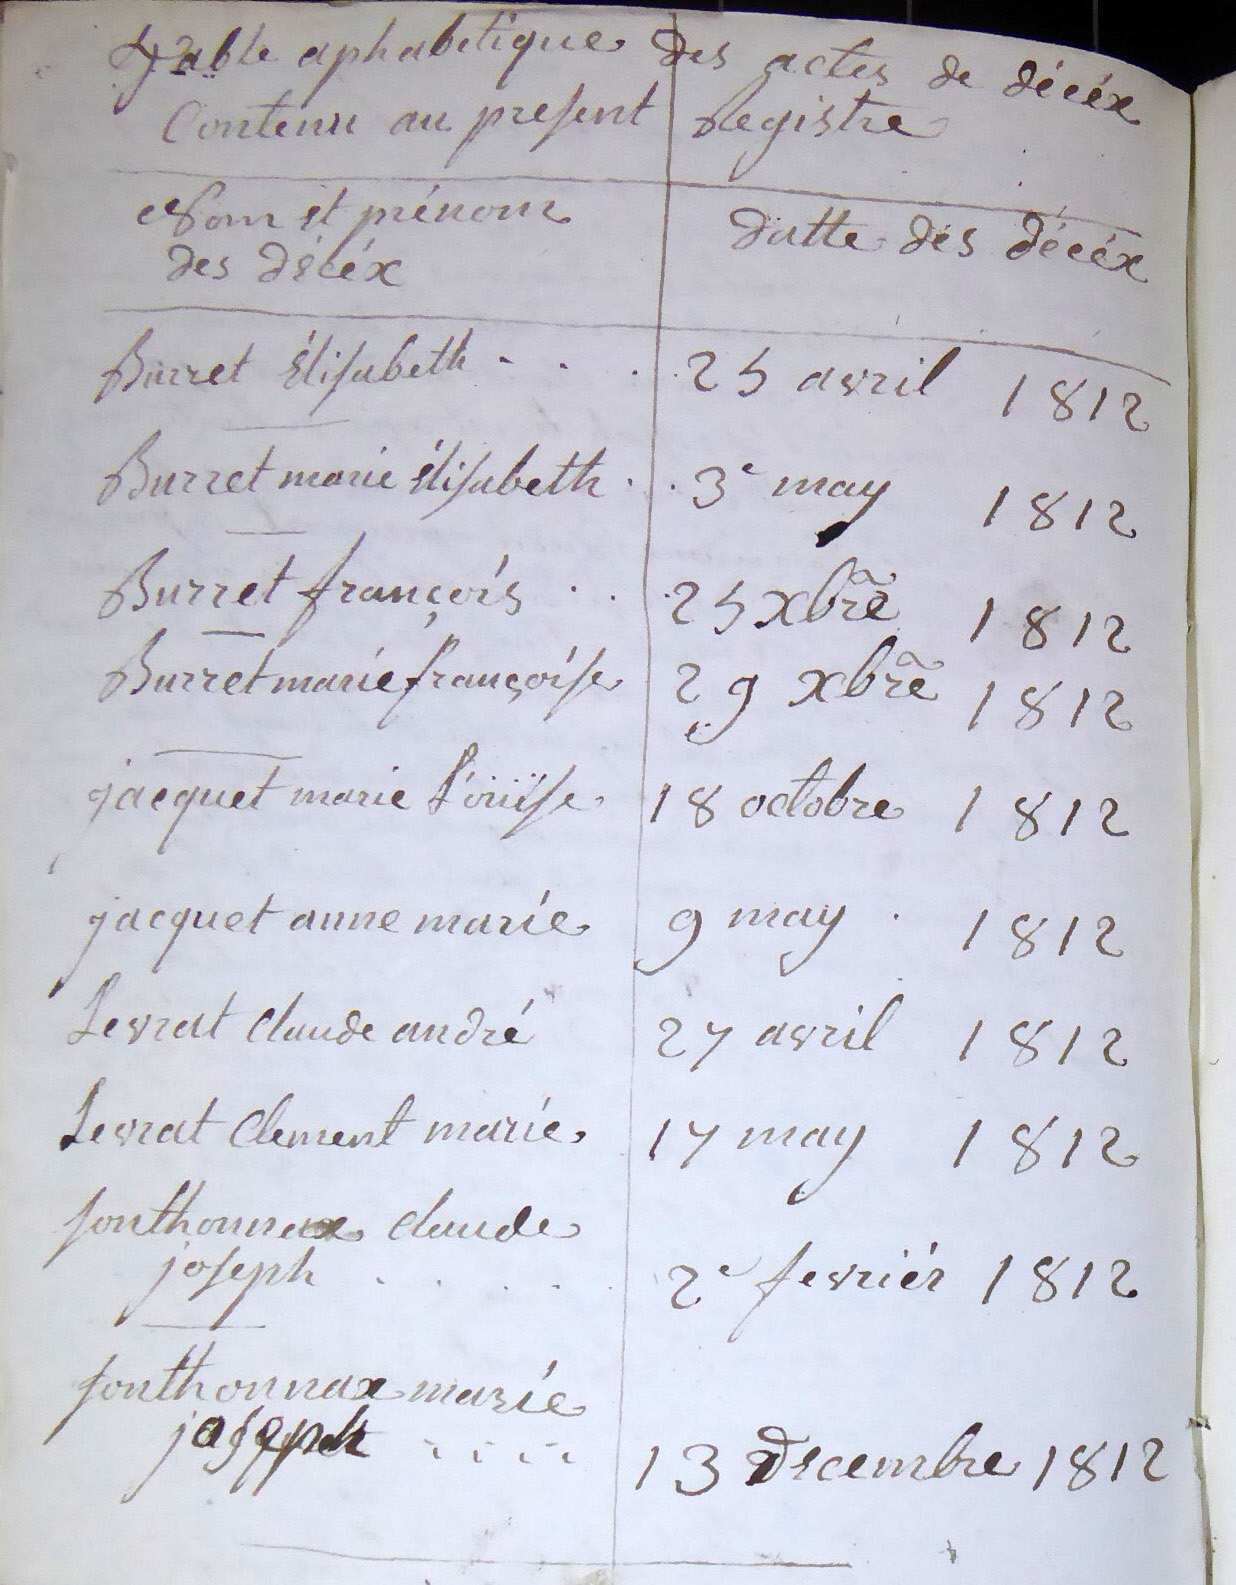 Table aphabetique des actes de décéx
Contenu au present Registre
Nom et prénom
des décéx
datte des décéx
Burret Élisabeth . . . . 25 avril 1812
Burret marie élisabeth . . 3e may 1812
Burret françois . . . 25 xbre 1812
Burret marie françoise 29 xbre 1812
jacquet marie Louïse 18 octobre 1812
jacquet anne marie 9 may . 1812
Levrat claude andré 27 avril 1812
Levrat clement marie 17 may 1812
sonthonnax claude
joseph . . . . . 2e fevriér 1812
sonthonnax marie
joseph . . . . 13 decembre 1812